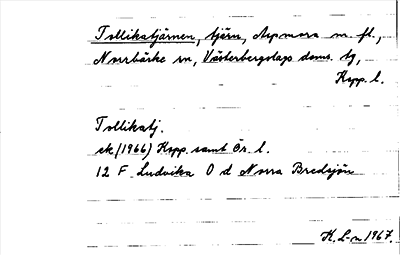 Tollikatjärnen, tjärn, Aspmora m. fl.,
Norrbärke sn, Västerbergslags doms. tg,
Kopp. l.
Tollikatj.
ek (1966) Kopp. samt Ör. l.
12 F Ludvika O d Norra Bredsjön
K. L-n 1967.